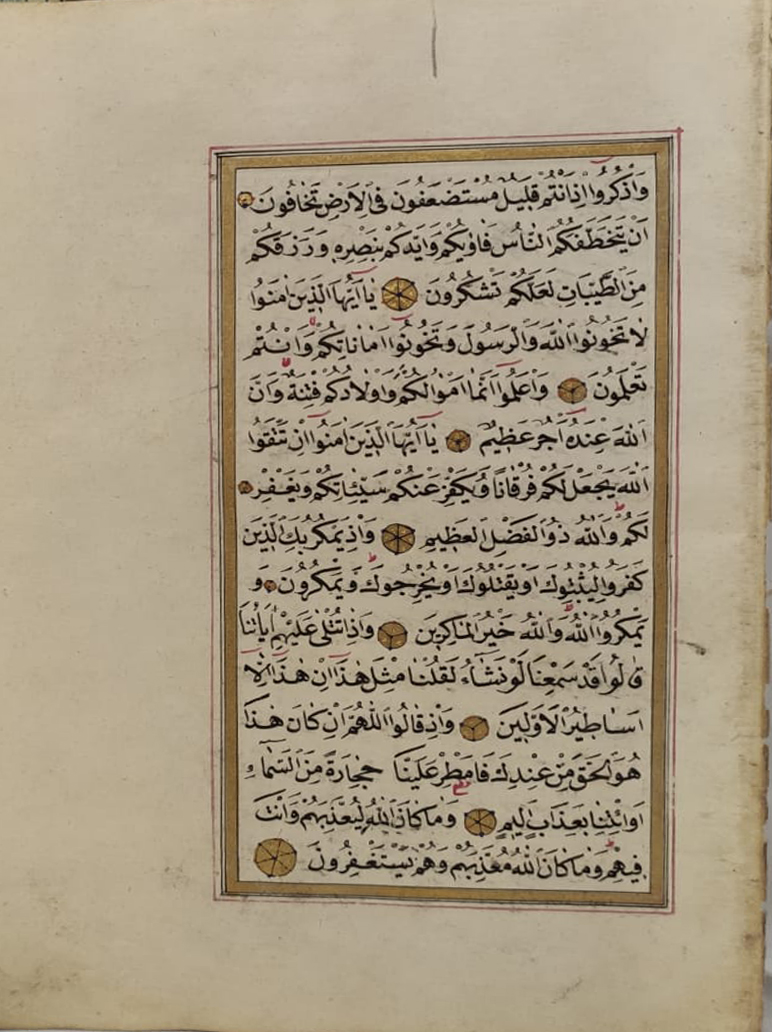 وَاذْكُرُوا اِذْ اَنْتُمْ قَلِيلٌ مُسْتَضْعَفُونَ فِى الْاَرْضِ تَخَافُونَ
اَنْ يَتَخَطَّفَكُمُ النَّاسُ فَاٰوٰيكُمْ وَاَيَّدَكُمْ بِنَصْرِهِ وَرَزَقَكُمْ
مِنَ الطَّيِّبَاتِ لَعَلَّكُمْ تَشْكُرُونَ يَا اَيُّهَا الَّذِينَ اٰمَنُوا
لَا تَخُونُوا اللّٰهَ وَالرَّسُولَ وَتَخُونُوا اَمَانَاتِكُمْ وَاَنْتُمْ
تَعْلَمُونَ وَاعْلَمُوا اَنَّمَا اَمْوَالُكُمْ وَاَوْلَادُكُمْ فِتْنَةٌ وَاَنَّ
اللّٰهَ عِنْدَهُ اَجْرٌ عَظِيمٌ يَا اَيُّهَا الَّذِينَ اٰمَنُوا اِنْ تَتَّقُوا
اللّٰهَ يَجْعَلْ لَكُمْ فُرْقَانًا وَيُكَفِّرْ عَنْكُمْ سَيِّئَاتِكُمْ وَيَغْفِرْ
لَكُمْ وَاللّٰهُ ذُو الْفَضْلِ الْعَظِيمِ وَاِذْ يَمْكُرُ بِكَ الَّذِينَ
كَفَرُوا لِيُثْبِتُوكَ اَوْ يَقْتُلُوكَ اَوْ يُخْرِجُوكَ وَيَمْكُرُونَ وَ
يَمْكُرُ اللّٰهُ وَاللّٰهُ خَيْرُ الْمَاكِرِينَ وَاِذَا تُتْلٰى عَلَيْهِمْ اٰيَاتُنَا
قَالُوا قَدْ سَمِعْنَا لَوْ نَشَاءُ لَقُلْنَا مِثْلَ هٰذَا اِنْ هٰذَا اِلَّا
اَسَاطِيرُ الْاَوَّلِينَ وَاِذْ قَالُوا اللّٰهُمَّ اِنْ كَانَ هٰذَا
هُوَ الْحَقَّ مِنْ عِنْدِكَ فَاَمْطِرْ عَلَيْنَا حِجَارَةً مِنَ السَّمَاءِ
اَوِ ائْتِنَا بِعَذَابٍ اَلِيمٍ وَمَا كَانَ اللّٰهُ لِيُعَذِّبَهُمْ وَاَنْتَ
فِيهِمْ وَمَا كَانَ اللّٰهُ مُعَذِّبَهُمْ وَهُمْ يَسْتَغْفِرُونَ